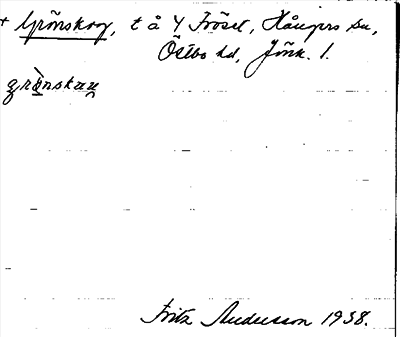 + Grönskog, t å Y Frösel, Hångers sn,
Östbo hd, Jönk. l.
grönskau
Fritz Andersson 1938.